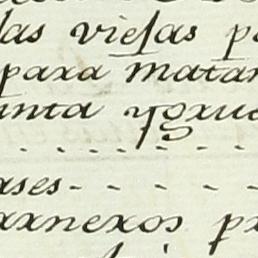 las viejas p
para matar
inta ygxue
ases - - - - -
arnexos p